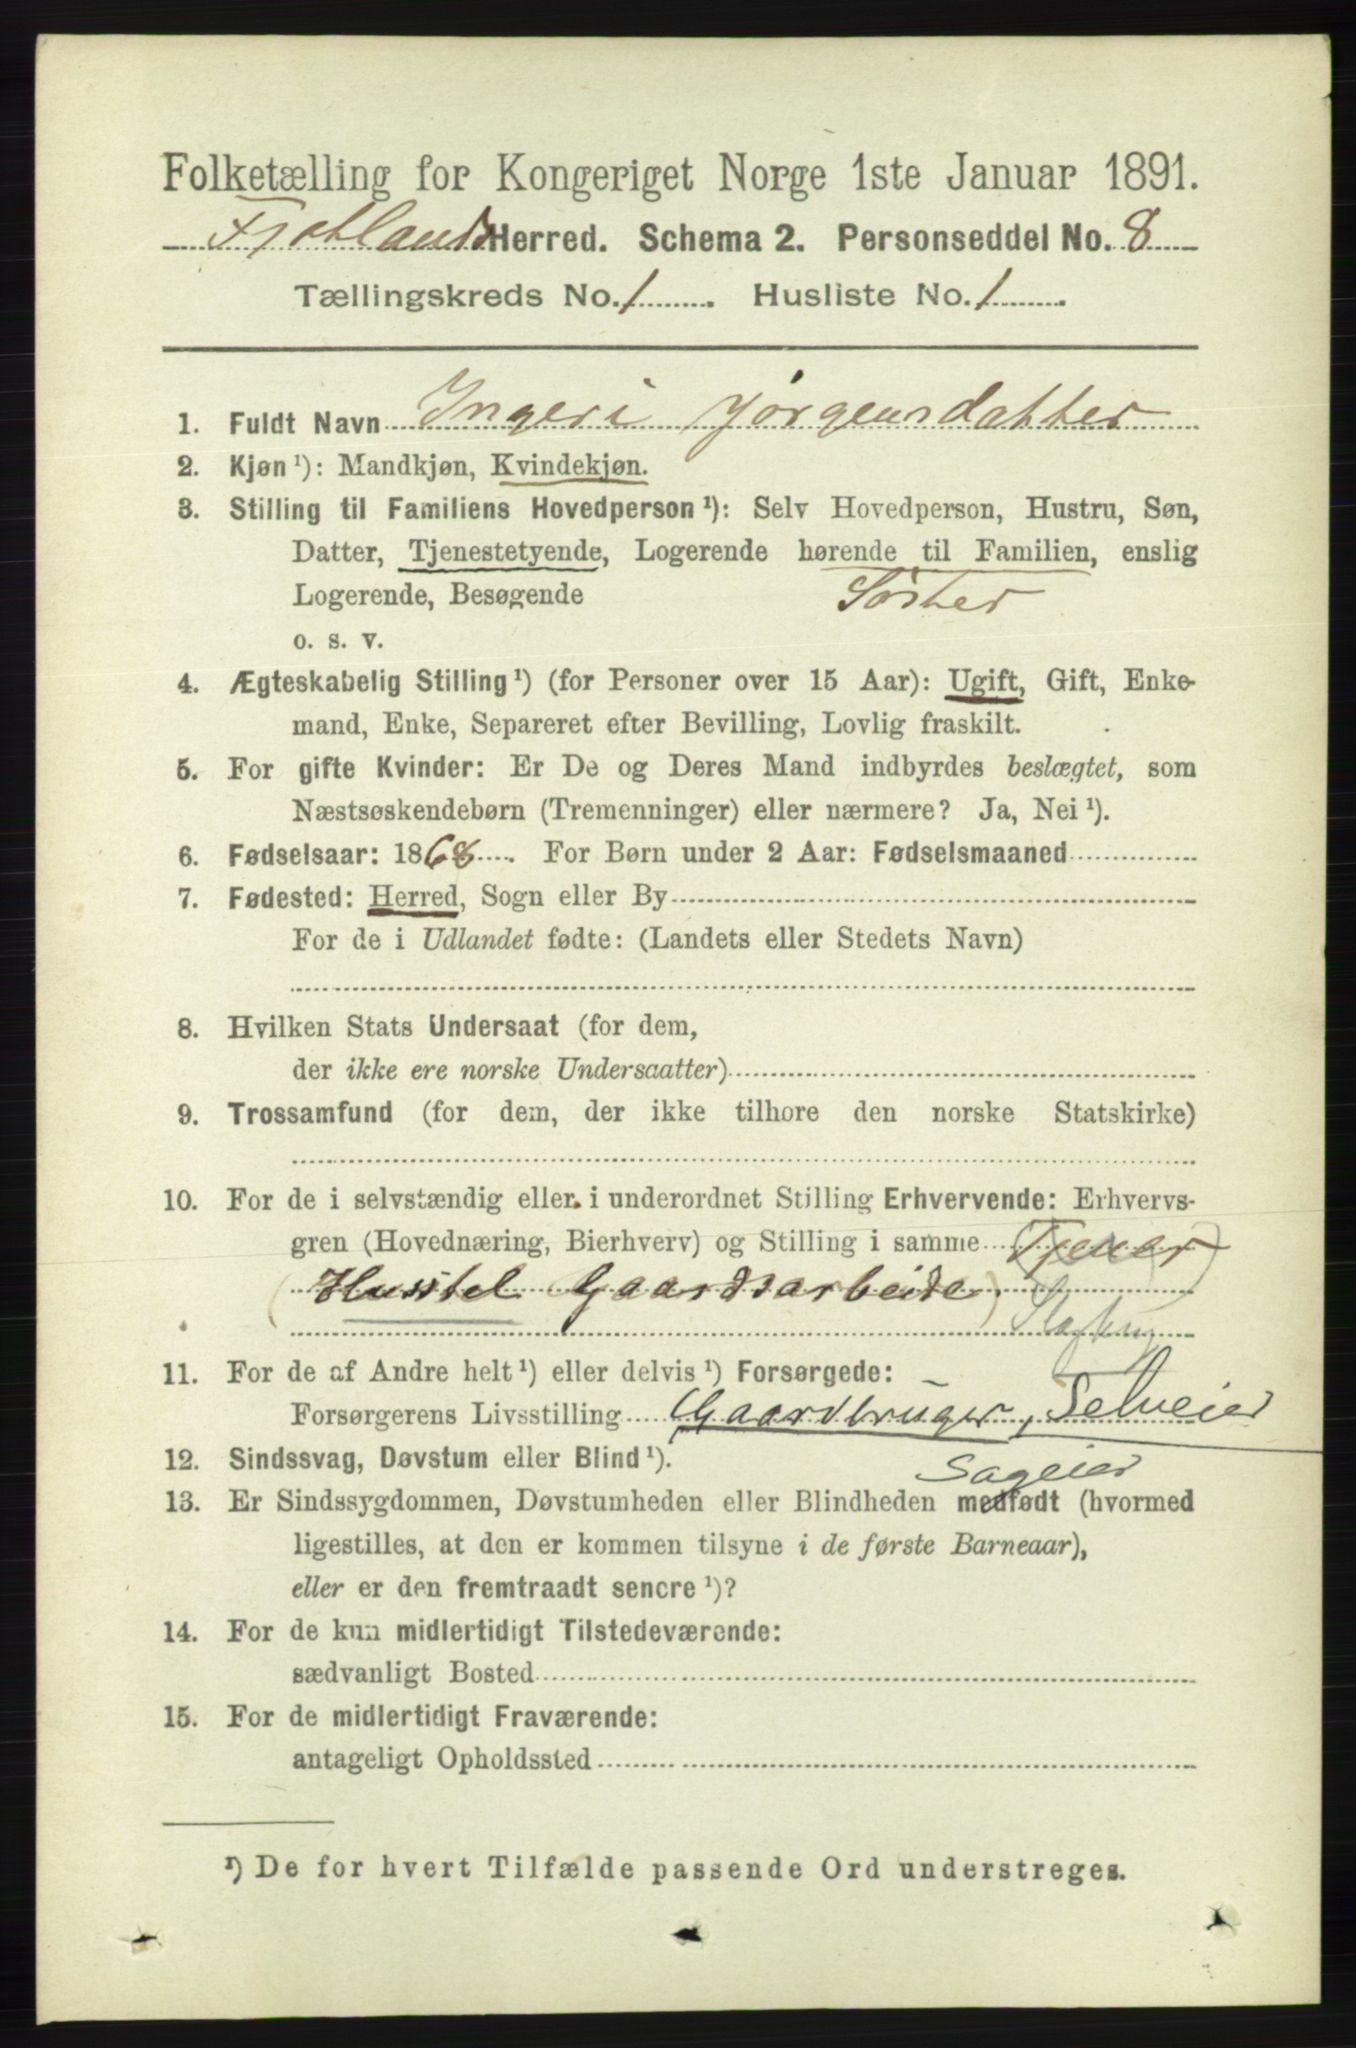 Folketælling for Kongeriget Norge 1ste Januar 1891.
Fjotlands Herred. Schema 2. Personseddel No. 8
Tællingskreds No. 1. Husliste No. 1.
1. Fuldt Navn Ingeri Jørgensdatter
2. Kjøn ¹): Mandkjøn, Kvindekjøn.
3. Stilling til Familiens Hovedperson ¹): Selv Hovedperson, Hustru, Søn,
Datter, Tjenestetyende, Logerende hørende til Familien, enslig
Logerende, Besøgende Søster
o. s. v.
4. Ægteskabelig Stilling ¹) (for Personer over 15 Aar): Ugift, Gift, Enke-
mand, Enke, Separeret efter Bevilling, Lovlig fraskilt.
5. For gifte Kvinder: Er De og Deres Mand indbyrdes beslægtet, som
Næstsøskendebørn (Tremenninger) eller nærmere? Ja, Nei ¹).
6. Fødselsaar: 1868. For Børn under 2 Aar: Fødselsmaaned
7. Fødested: Herred, Sogn eller By
For de i Udlandet fødte: (Landets eller Stedets Navn)
8. Hvilken Stats Undersaat (for dem,
der ikke ere norske Undersaatter)
9. Trossamfund (for dem, der ikke tilhore den norske Statskirke)
10. For de i selvstændig eller i underordnet Stilling Erhvervende: Erhvervs-
gren (Hovednæring, Bierhverv) og Stilling i samme (Tjener)
(Husstel Gaardsarbeide)
11. For de af Andre helt ¹) eller delvis ¹) Forsørgede:
Forsørgerens Livsstilling Gaardbruger, Selveier
12. Sindssvag, Døvstum eller Blind ¹). Sageier
13. Er Sindssygdommen, Døvstumheden eller Blindheden medfødt (hvormed
ligestilles, at den er kommen tilsyne i de første Barneaar),
eller er den fremtraadt senere ¹)?
14. For de kun midlertidigt Tilstedeværende:
sædvanligt Bosted
15. For de midlertidigt Fraværende:
antageligt Opholdssted
¹) De for hvert Tilfælde passende Ord understreges.